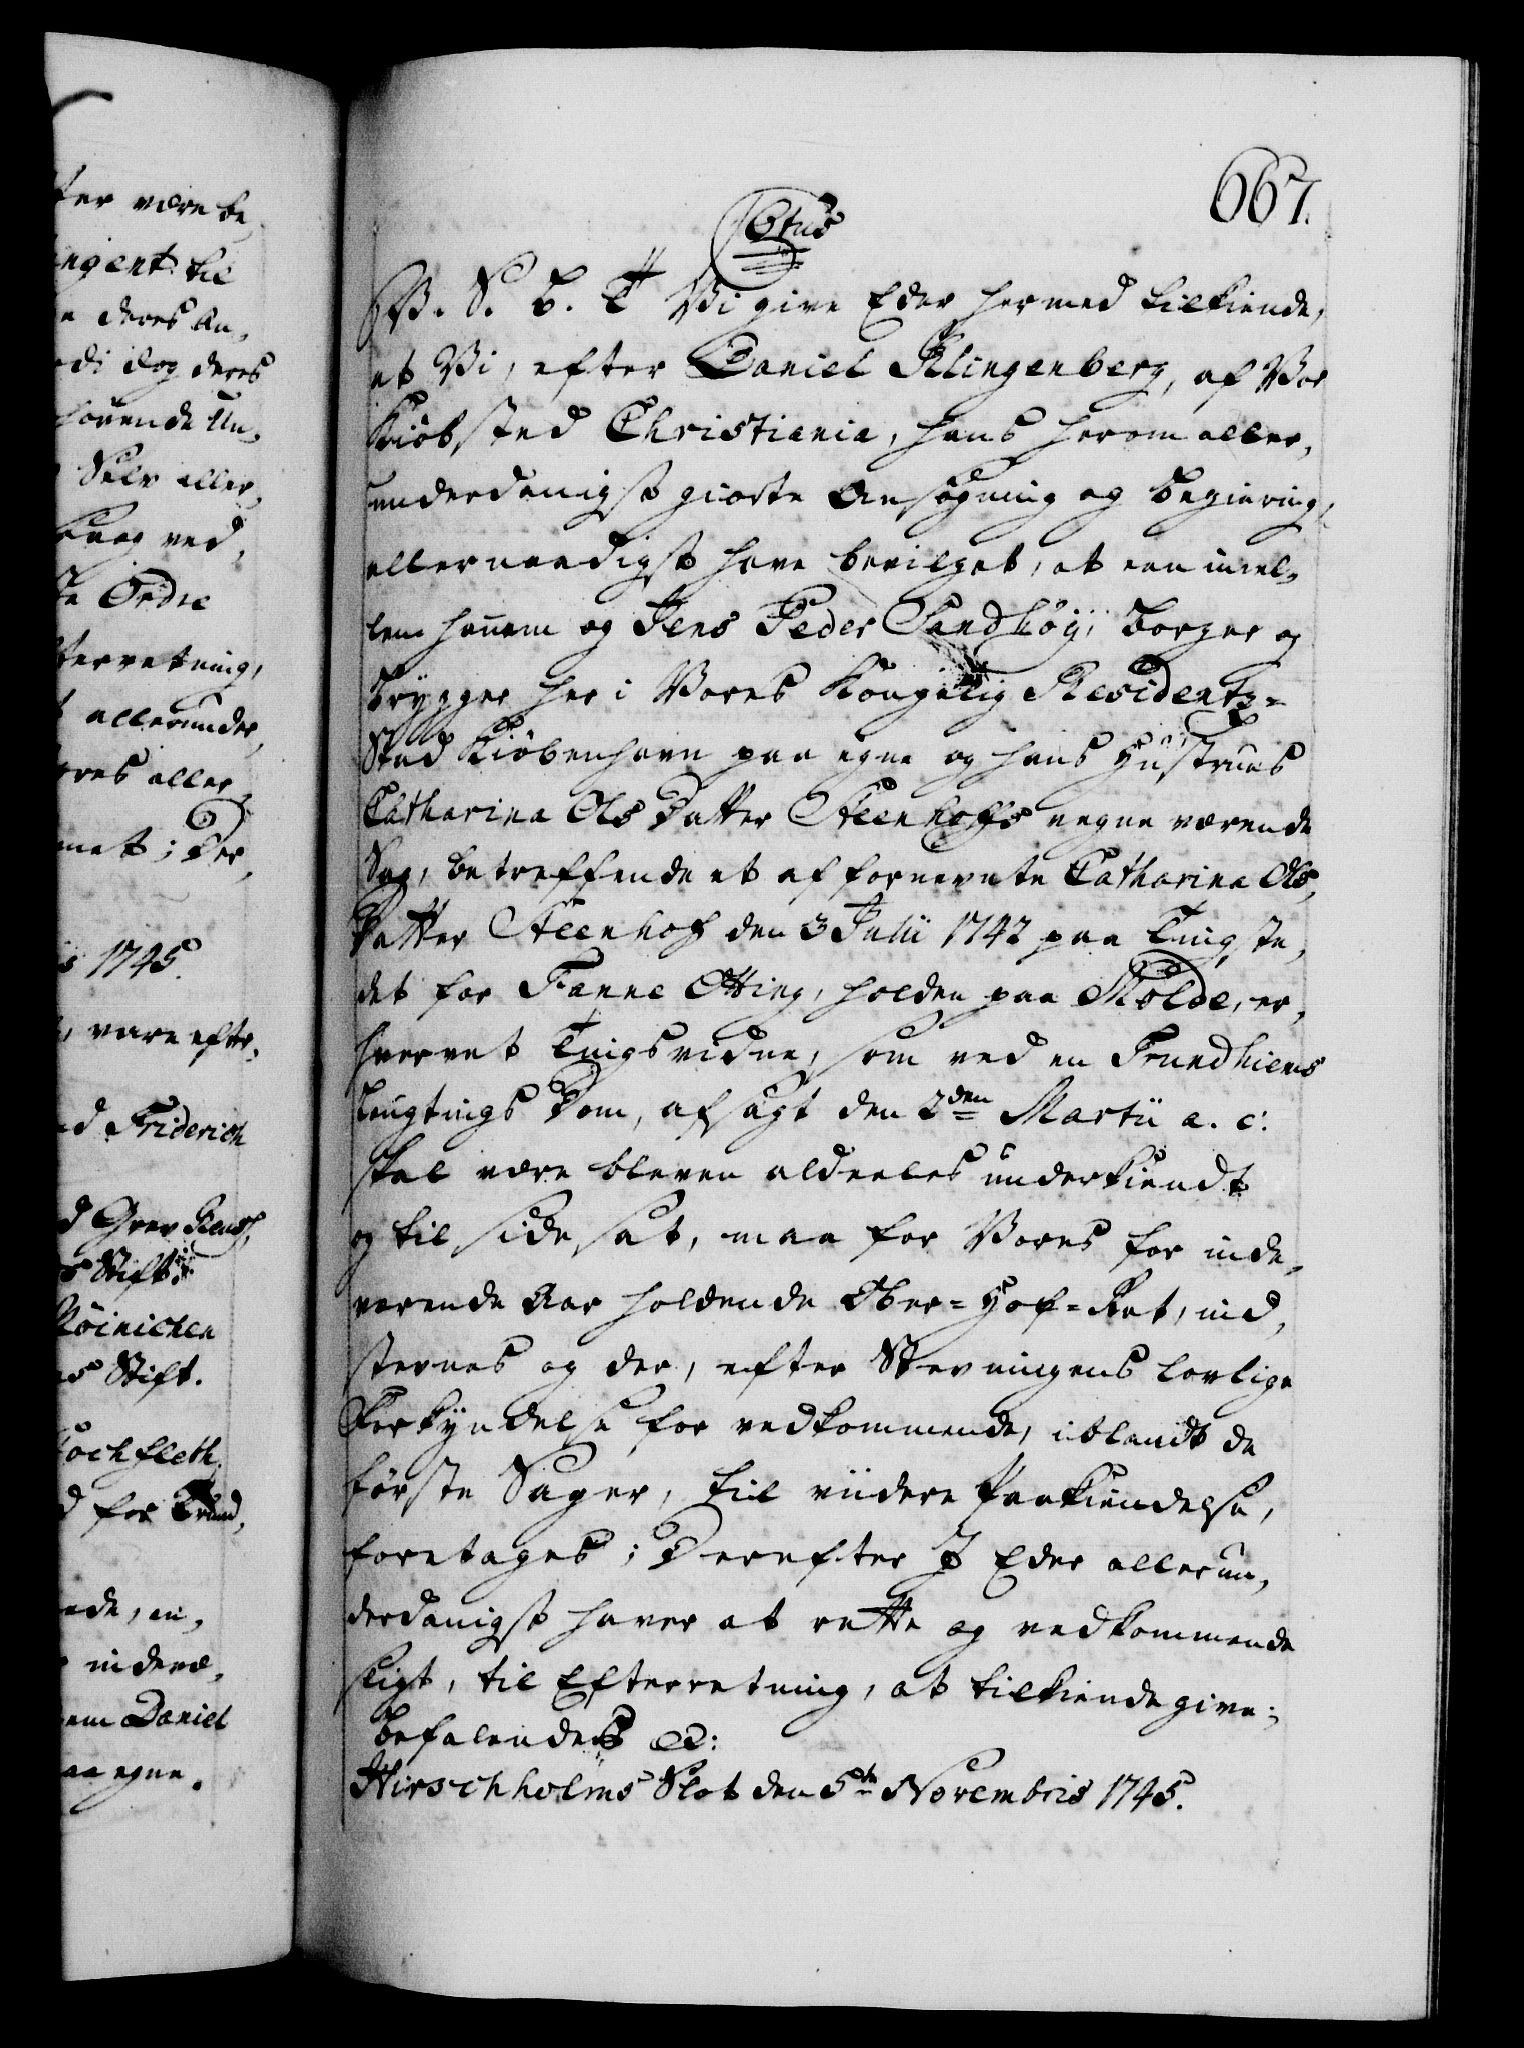 ter være be„
ngent til
e deres An„
rdi dog deres
hörende Un„
Selv aller„
ed
te Ordre
terretning,
t allerunder„
ores aller„
met; Der„
is 1745.
, være efter„
d Friderich
d Grev Rents„
s Stift:
Röinichen
s Stift.
Hochfleth
d for Trund„
ede, en„
indevæ„
em Daniel
aa egne
667.
Ctus
V. S. B. T Vi give Eder hermed tilkiende,
at Vi, efter Daniel Klingenberg, af Vor
Kiöbsted Christiania, hans herom aller„
underdanigst giorte Ansögning og Begiering,
allernaadigst have bevilget, at een imel„
lem hannem og Jens Peder Sandhöy, Borger og
Brygger her i Vores Kongelig Residentz=
Stad Kiöbenhavn paa egne og hans Hustrues
Catharina Ols Datter Steenhoffs vegne værende
Sag, betreffende et af fornevnte Catharina Ols„
Datter Steenhof den 3 Julii 1742 paa Tingste„
det for Fanne Otting, holden paa Molde, er„
hvervet Tingsvidne, som ved en Trundhiems
Laugtings Dom, afsagt den 2den Martii a. c:
skal være bleven aldeeles underkiendt
og til side sat, maa for Vores for inde„
værende Aar holdende Ober=Hof=Ret, ind„
stevnes og der, efter Stevningens lovlige
Forkyndelse for vedkommende, iblandt de
förste Sager, til viidere Paakiendelse,
foretages; Derefter I Eder allerun„
derdanigst haver at rette og vedkommende
sligt, til Efterretning, at tilkiendegive;
Befalendes etc:
Hirschholms Slot den 5te Novembris 1745.